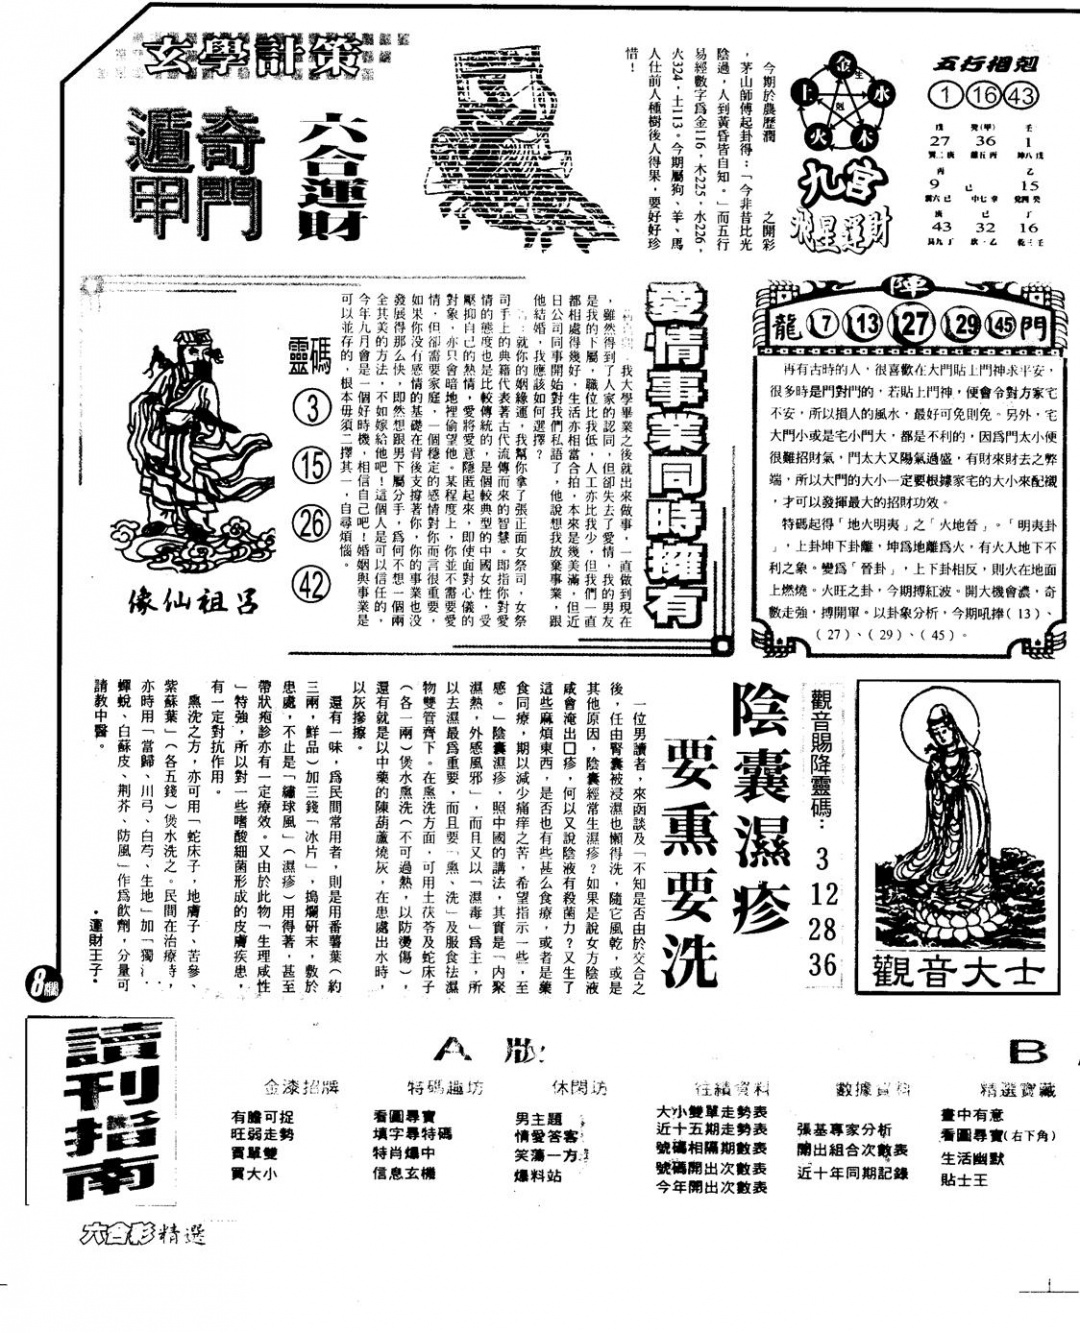 玄學計策
奇門
遁甲
六合運財
今期於農歷潤　　　之開彩
，茅山師傅起卦得：「今非昔比光
陰過，人到黃昏皆自知。」而五行
易經數字爲金116，木225，水226，
火324，土113。今期屬狗、羊、馬
人仕前人種樹後人得果，要好好珍
惜！
金
生
土
水
剋
火
木
九宮
飛星運財
五行相剋
1 16 43
戊 癸(甲) 壬
27 36 1
丙 乙
9 己 15
庚 己 丁
43 32 16
陣
龍 7 13 27 29 45 門
再有古時的人，很喜歡在大門貼上門神求平安，
很多時是門對門的，若貼上門神，便會令對方家宅
不安，所以損人的風水，最好可免則免。另外，宅
大門小或是宅小門大，都是不利的，因爲門太小便
很難招財氣，門太大又陽氣過盛，有財來財去之弊
端，所以大門的大小一定要根據家宅的大小來配襯
，才可以發揮最大的招財功效。
特碼起得「地火明夷」之「火地晉」。「明夷卦
」，上卦坤下卦離，坤爲地離爲火，有火入地下不
利之象。變爲「晉卦」，上下卦相反，則火在地面
上燃燒。火旺之卦，今期搏紅波。開大機會濃，奇
數走強，搏開單。以卦象分析，今期吼捧（13）、
（27）、（29）、（45）。
愛情事業同時擁有
我大學畢業之後就出來做事，一直做到現在
，雖然得到了人家的認同，但卻失去了愛情，我的男友
是我的下屬，職位比我低，人工亦比我少，但我們一直
都相處得幾好，生活亦相當合拍，本來是幾美滿，但近
日公司同事開始對我們私語了，他說想我放棄事業，跟
他結婚，我應該如何選擇？
就你的姻緣運，我幫你拿了張正面女祭司，女祭
司手上的典籍代表著古代流傳而來的智慧。即指你對愛
情的態度也是比較傳統的，是個較典型的中國女性，受
壓抑自己的熱情，愛將愛意隱匿起來，即使面對心儀的
對象，亦只會暗地裡偷望他。某程度上，你並不需要愛
情，但卻需要家庭，一個穩定的感情對你而言很重要，
如果你没有感情的基礎在背後支撐著你，你的事業也没
發展得那么快，即然想跟男下屬分手，爲何不想一個兩
全其美的方法，不如嫁給他吧！這個人是可以信任的，
今年九月會是一個好時機，相信自己吧！婚姻與事業是
可以並存的，根本毋須二擇其一，自尋煩惱。
靈碼
3
15
26
42
呂祖仙像
觀音大士
觀音賜降靈碼：3 12 28 36
陰囊濕疹
要熏要洗
一位男讀者，來函談及「不知是否由於交合之
後，任由腎囊被浸濕也懶得洗，隨它風乾，或是
其他原因，陰囊經常生濕疹？如果是說女方陰液
咸會淹出□疹，何以又說陰液有殺菌力？又生了
這些麻煩東西，是否也有些甚么食療，或者是藥
食同療，期以減少痛痒之苦，希望指示一些，至
感。」陰囊濕疹，照中國的講法，其實是「內聚
濕熱，外感風邪」，而且又以「濕毒」爲主，所
以去濕最爲重要，而且要「熏、洗」及服食祛濕
物雙管齊下。在熏洗方面，可用土茯苓及蛇床子
（各一兩）煲水熏洗（不可過熱，以防燙傷），
還有就是以中藥的陳葫蘆燒灰，在患處出水時，
以灰摻擦。
還有一味，爲民間常用者，則是用番薯葉（約
三兩，鮮品）加三錢「冰片」，搗爛研末，敷於
患處，不止是「繡球風」（濕疹）用得著，甚至
帶狀疱診亦有一定療效。又由於此物「生理咸性
」特強，所以對一些嗜酸細菌形成的皮膚疾患，
有一定對抗作用。
熏洗之方，亦可用「蛇床子，地膚子、苦參、
紫蘇葉」（各五錢）煲水洗之。民間在治療時，
亦時用「當歸、川弓、白芍、生地」加「獨
蟬蛻、白蘇皮、荆芥、防風」作爲飲劑，分量可
請教中醫。
．運財王子．
8
讀刊指南
A版:
B
金漆招牌
有膽可捉
旺弱走勢
買單雙
買大小
特碼趣坊
看圖尋寶
填字尋特碼
特肖爆中
信息玄機
休閑坊
男主題
情愛答客
笑蕩一方
爆料站
往績資料
大小雙單走勢表
近十五期走勢表
號碼相隔期數表
號碼開出次數表
今年開出次數表
數據資料
張基專家分析
開出組合次數表
近十年同期記錄
精選寶藏
畫中有意
看圖尋寶(右下角)
生活幽默
貼士王
六合彩精選